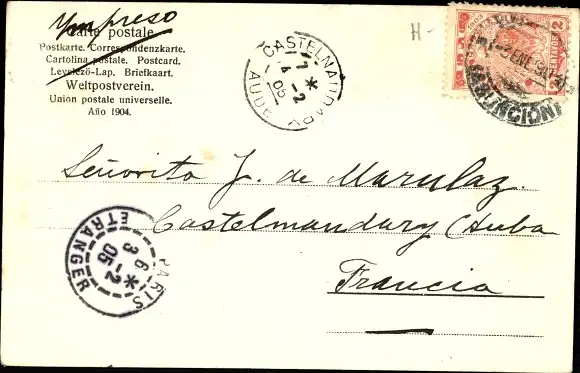 Impreso
Carte postale
Postkarte. Correspondenzkarte.
Cartolina postale. Postcard.
Levelezö-Lap. Briefkaart.
Weltpostverein.
Union postale universelle.
Año 1904.
H-
CASTELNAUDARY
7 *
4 -2
05
AUDE
2
CENTAVOS
ENE
ASUNCION
Señorita J. de Marulaz.
Castelmandary (Auba
Francia
PARIS
6 -2
3 05
ETRANGER